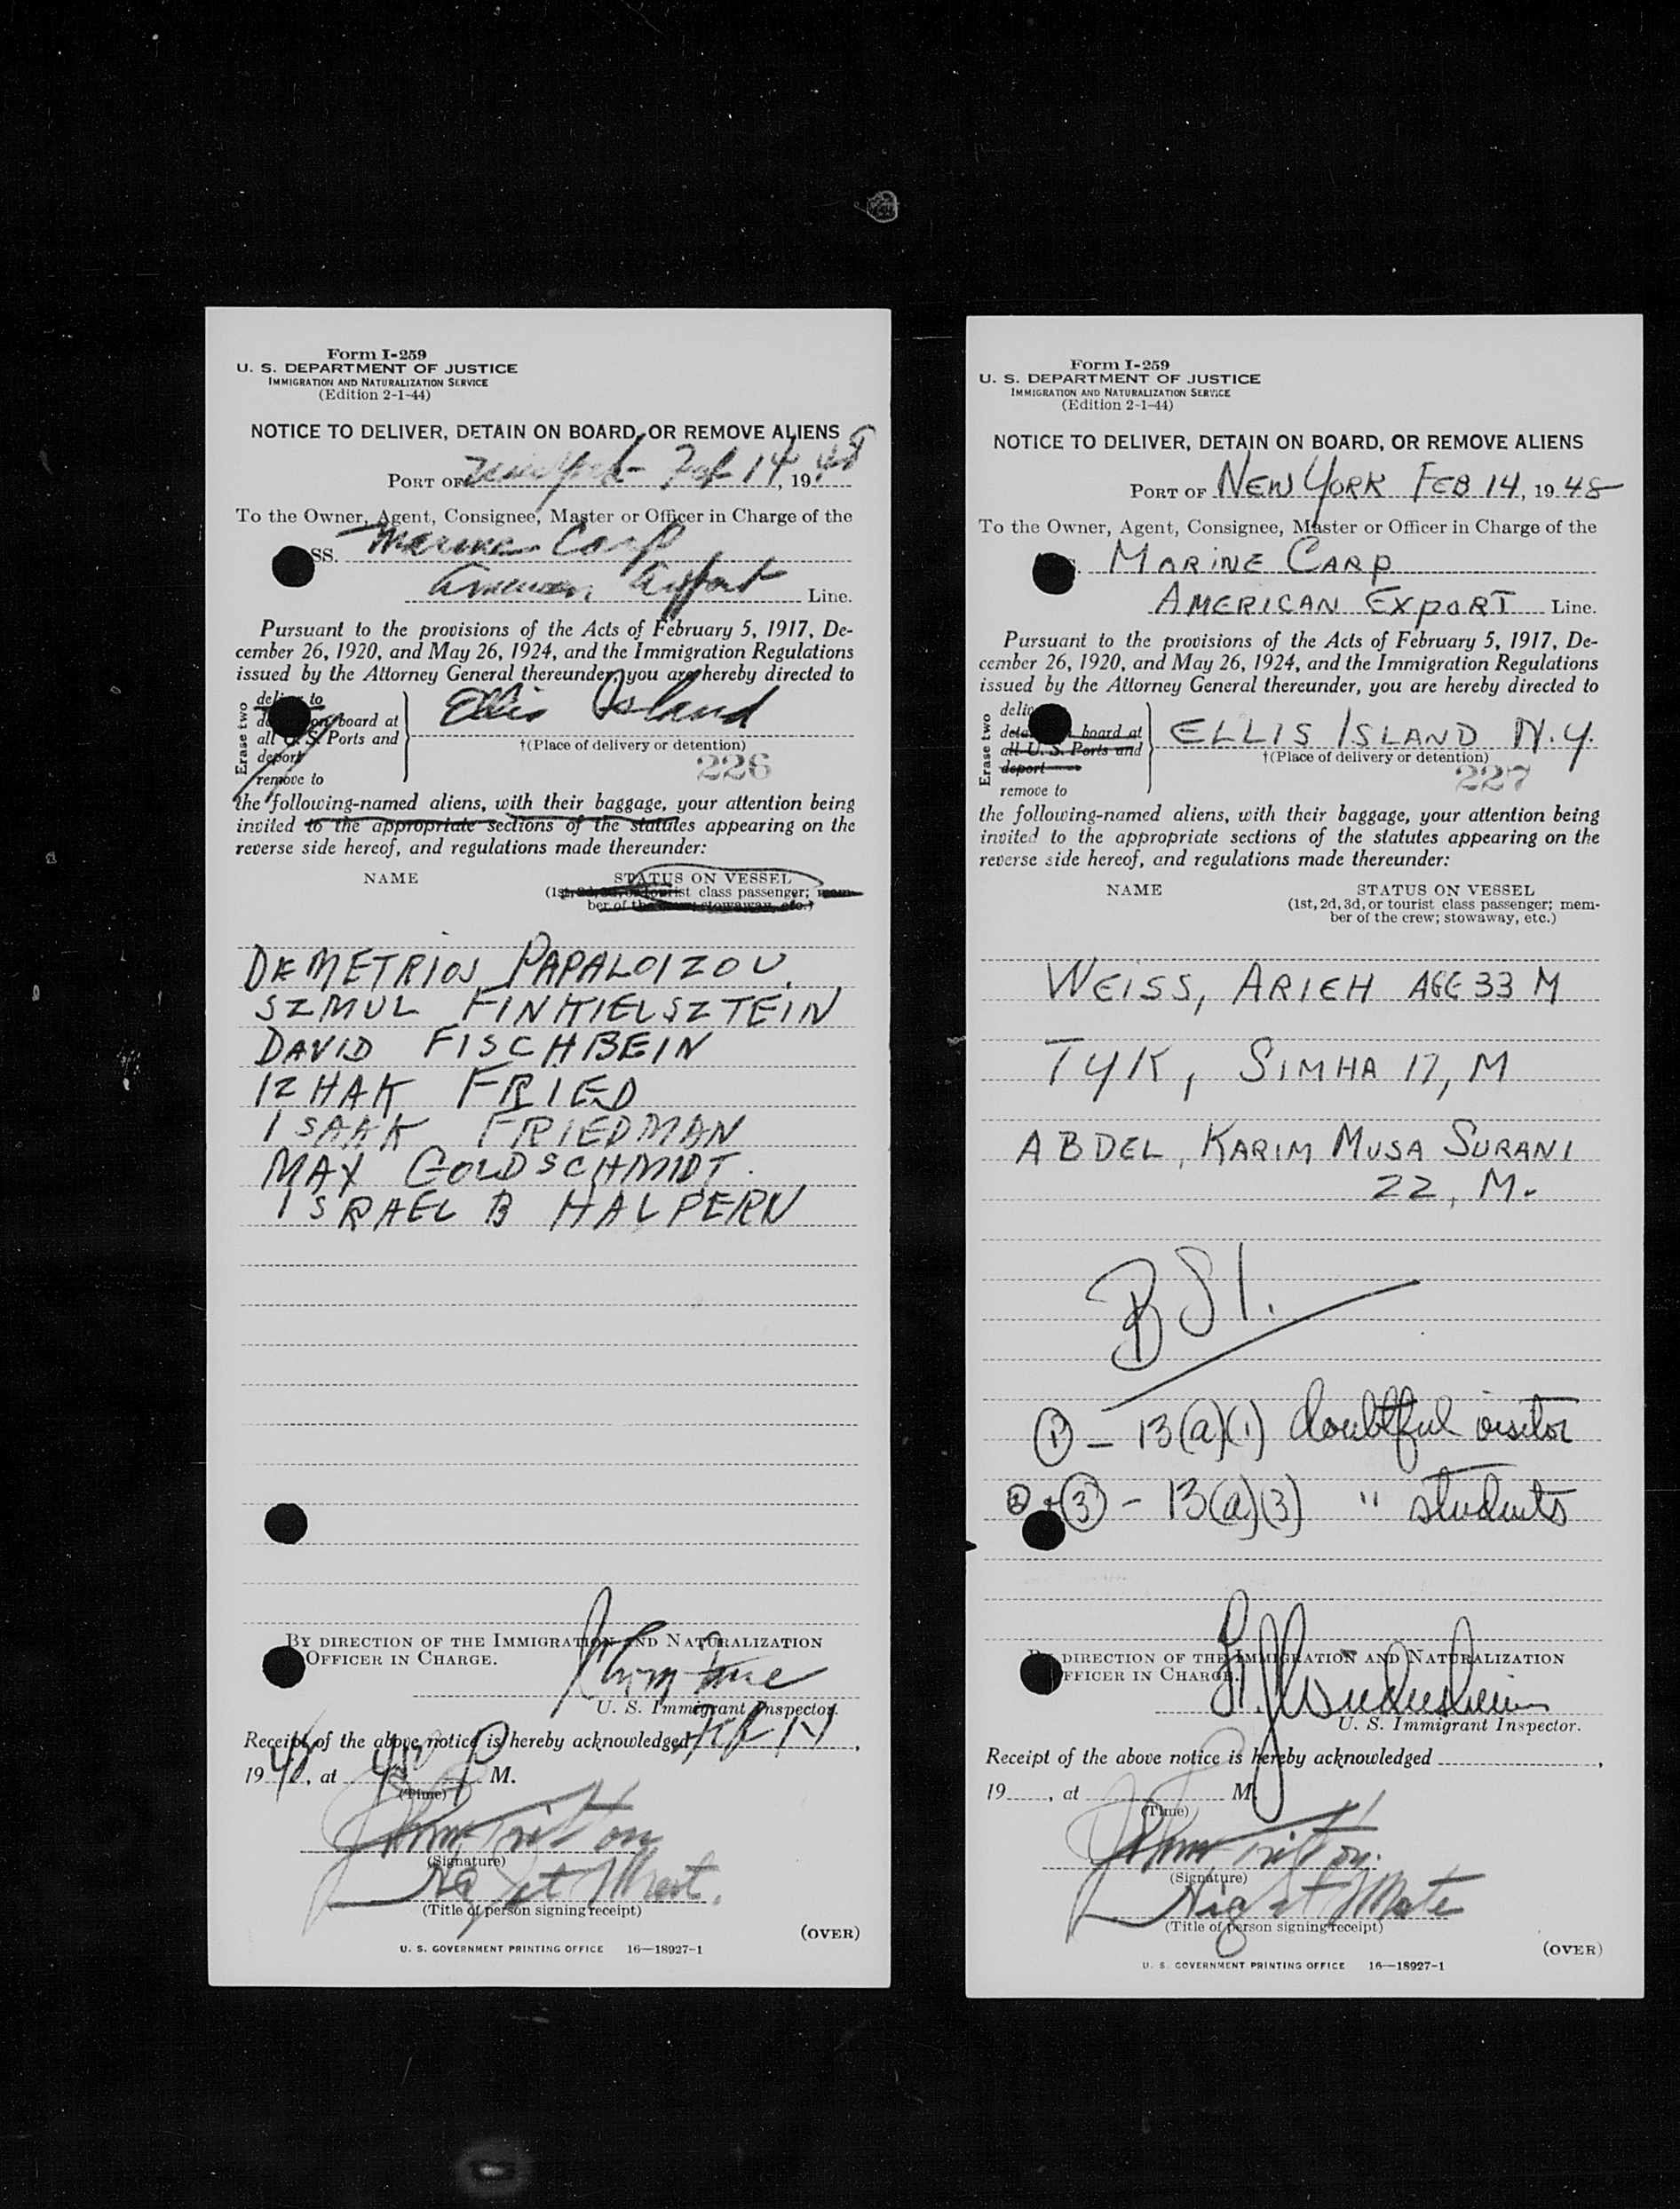 Form I-259
U. S. DEPARTMENT OF JUSTICE
IMMIGRATION AND NATURALIZATION SERVICE
(Edition 2-1-44)
NOTICE TO DELIVER, DETAIN ON BOARD, OR REMOVE ALIENS
PORT OF New York Feb 14, 1948
To the Owner, Agent, Consignee, Master or Officer in Charge of the
SS. Marine Carp
American Export Line.
Pursuant to the provisions of the Acts of February 5, 1917, De-
cember 26, 1920, and May 26, 1924, and the Immigration Regulations
issued by the Attorney General thereunder, you are hereby directed to
Erase two
deliver to
on board at
all U. S. Ports and
deport
remove to
Ellis Island
†(Place of delivery or detention)
226
the following-named aliens, with their baggage, your attention being
invited to the appropriate sections of the statutes appearing on the
reverse side hereof, and regulations made thereunder:
NAME STATUS ON VESSEL
(1st, 2d, 3d, or tourist class passenger; mem-
ber of the crew; stowaway, etc.)
DEMETRIOS PAPALOIZOU
SZMUL FINKIELSZTEIN
DAVID FISCHBEIN
IZHAK FRIED
ISAAK FRIEDMAN
MAX GOLDSCHMIDT.
ISRAEL B HALPERN
BY DIRECTION OF THE IMMIGRATION AND NATURALIZATION
OFFICER IN CHARGE.
U. S. Immigrant Inspector.
Receipt of the above notice is hereby acknowledged Feb 14,
1948, at P M.
(Time)
John
(Signature)
Night Mate
(Title of person signing receipt)
(OVER)
U. S. GOVERNMENT PRINTING OFFICE 16—18927-1
Form I-259
U. S. DEPARTMENT OF JUSTICE
IMMIGRATION AND NATURALIZATION SERVICE
(Edition 2-1-44)
NOTICE TO DELIVER, DETAIN ON BOARD, OR REMOVE ALIENS
PORT OF NEW YORK FEB 14, 1948
To the Owner, Agent, Consignee, Master or Officer in Charge of the
MARINE CARP
AMERICAN EXPORT Line.
Pursuant to the provisions of the Acts of February 5, 1917, De-
cember 26, 1920, and May 26, 1924, and the Immigration Regulations
issued by the Attorney General thereunder, you are hereby directed to
Erase two
board at
all U. S. Ports and
deport
remove to
ELLIS ISLAND N.Y.
†(Place of delivery or detention)
227
the following-named aliens, with their baggage, your attention being
invited to the appropriate sections of the statutes appearing on the
reverse side hereof, and regulations made thereunder:
NAME STATUS ON VESSEL
(1st, 2d, 3d, or tourist class passenger; mem-
ber of the crew; stowaway, etc.)
WEISS, ARIEH AGE 33 M
TYK, SIMHA 17, M
ABDEL, KARIM MUSA SURANI
22, M.
BSI.
① – 13(a)(1) doubtful visitor
② + ③ – 13(a)(3) " students
DIRECTION OF THE IMMIGRATION AND NATURALIZATION
OFFICER IN CHARGE.
U. S. Immigrant Inspector.
Receipt of the above notice is hereby acknowledged ,
19 , at M.
(Time)
John
(Signature)
Night Mate
(Title of person signing receipt)
(OVER)
U. S. GOVERNMENT PRINTING OFFICE 16—18927-1